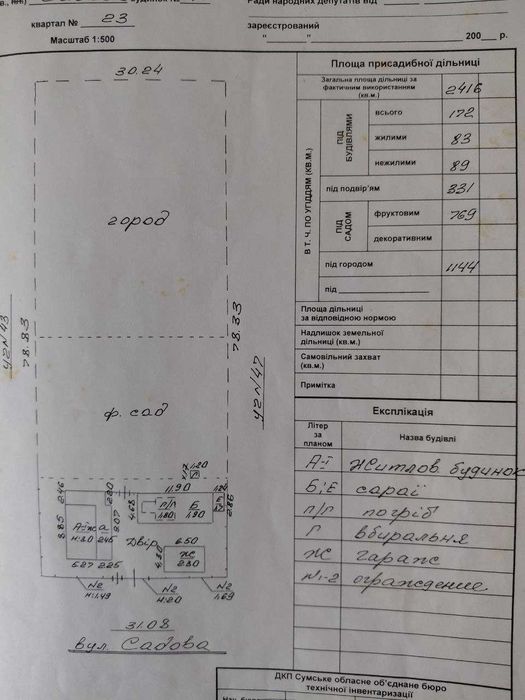 квартал № 23
Масштаб 1:500
Ради народних депутатів від
зареєстрований
"____" 200___ р.
30.24
город
уч N 43
78.83
78.33
уч N 47
ф. сад
1.20
11.90
2.46
2.20
4.68
П/Г
Б
4.80
4.90
Е
2.86
8.85
А-I жл
а
н:2.0
2.45
2.07
Двір
6.50
Ж
2.80
5.27
2.25
N2
N2
N2
н:1.49
н:2.0
1.69
31.08
вул. Садова
Площа присадибної дільниці
Загальна площа дільниці за
фактичним використанням
(кв.м.)
2416
В Т. Ч. ПО УГІДДЯМ (КВ.М.)
ПІД
БУДІВЛЯМИ
всього 172
жилими 83
нежилими 89
під подвір'ям 331
ПІД
САДОМ
фруктовим 769
декоративним
під городом 1144
під
Площа дільниці
за відповідною нормою
Надлишок земельної
дільниці (кв.м.)
Самовільний захват
(кв.м.)
Примітка
Експлікація
Літер
за
планом
Назва будівлі
А-I житлов. будинок
Б; Е сараї
п/г погріб
Г вбиральня
Ж гараж
N1-2 ограждение
ДКП Сумське обласне об'єднане бюро
технічної інвентаризації